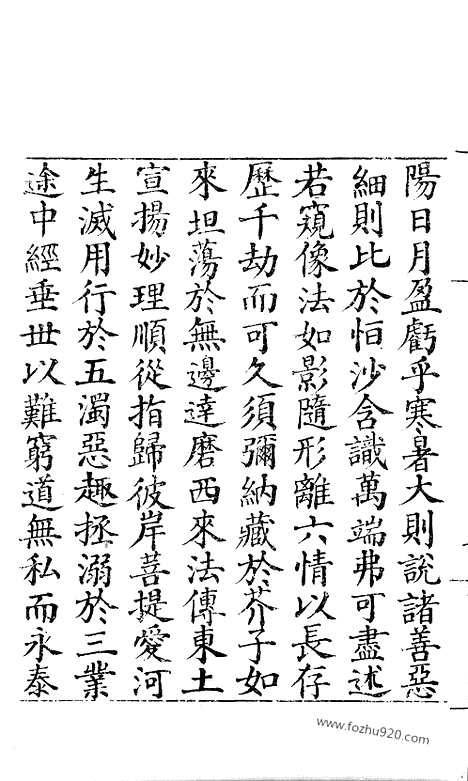 陽日月盈虧乎寒暑大則說諸善惡
細則比於恒沙含識萬端弗可盡述
若窺像法如影隨形離六情以長存
歷千劫而可久須彌納藏於芥子如
來坦蕩於無邊達磨西來法傳東土
宣揚妙理順從指歸彼岸菩提愛河
生滅用行於五濁惡趣拯溺於三業
途中經垂世以難窮道無私而永泰
www.fozhu920.com